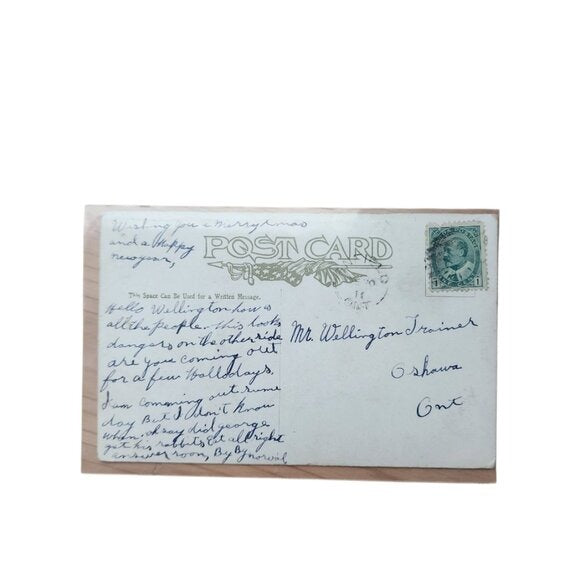 Wishing you a merry xmas
and a Happy
newyear,
POST CARD
This Space Can Be Used for a Written Message.
Hello Wellington how is
all the people. this looks
dangers on the other side
are you coming out
for a few Halladays.
I am comming out sume
day But I don't know
when. oh say did george
get his rabbits Let all right
answer soon, By By norval
Mr. Wellington Trainer
Oshawa
Ont
1 1